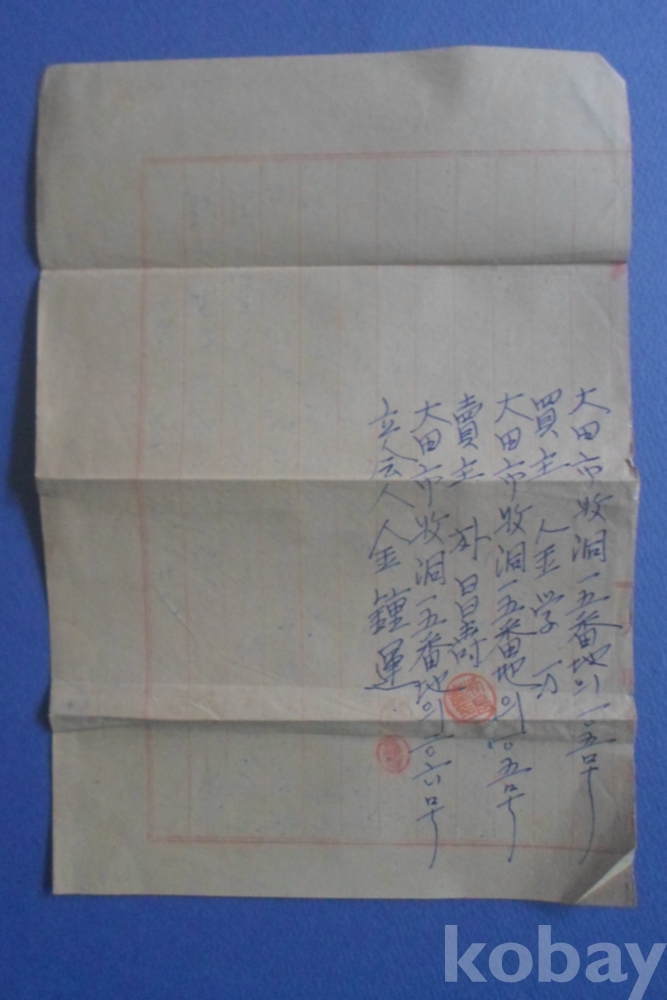 大田市牧洞一五番地의一〇五号
買主 金学万
大田市牧洞一五番地의一〇五号
賣主 朴昌壽
大田市牧洞一五番地의一〇六号
立会人金鐘運
kobay